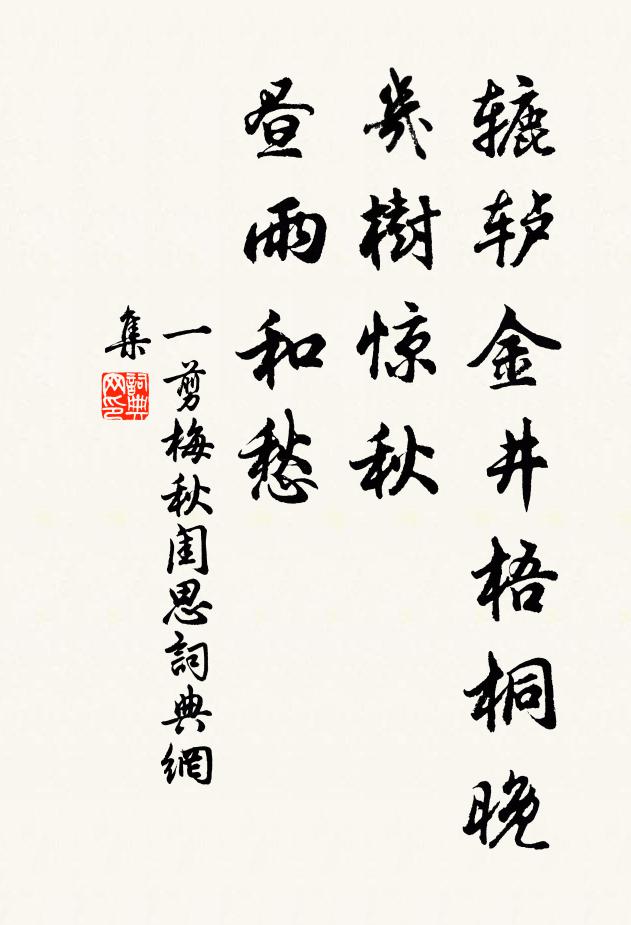 辘轳金井梧桐晚
幾樹惊秋
昼雨和愁
一剪梅秋闺思詞典網
集
詞典网印